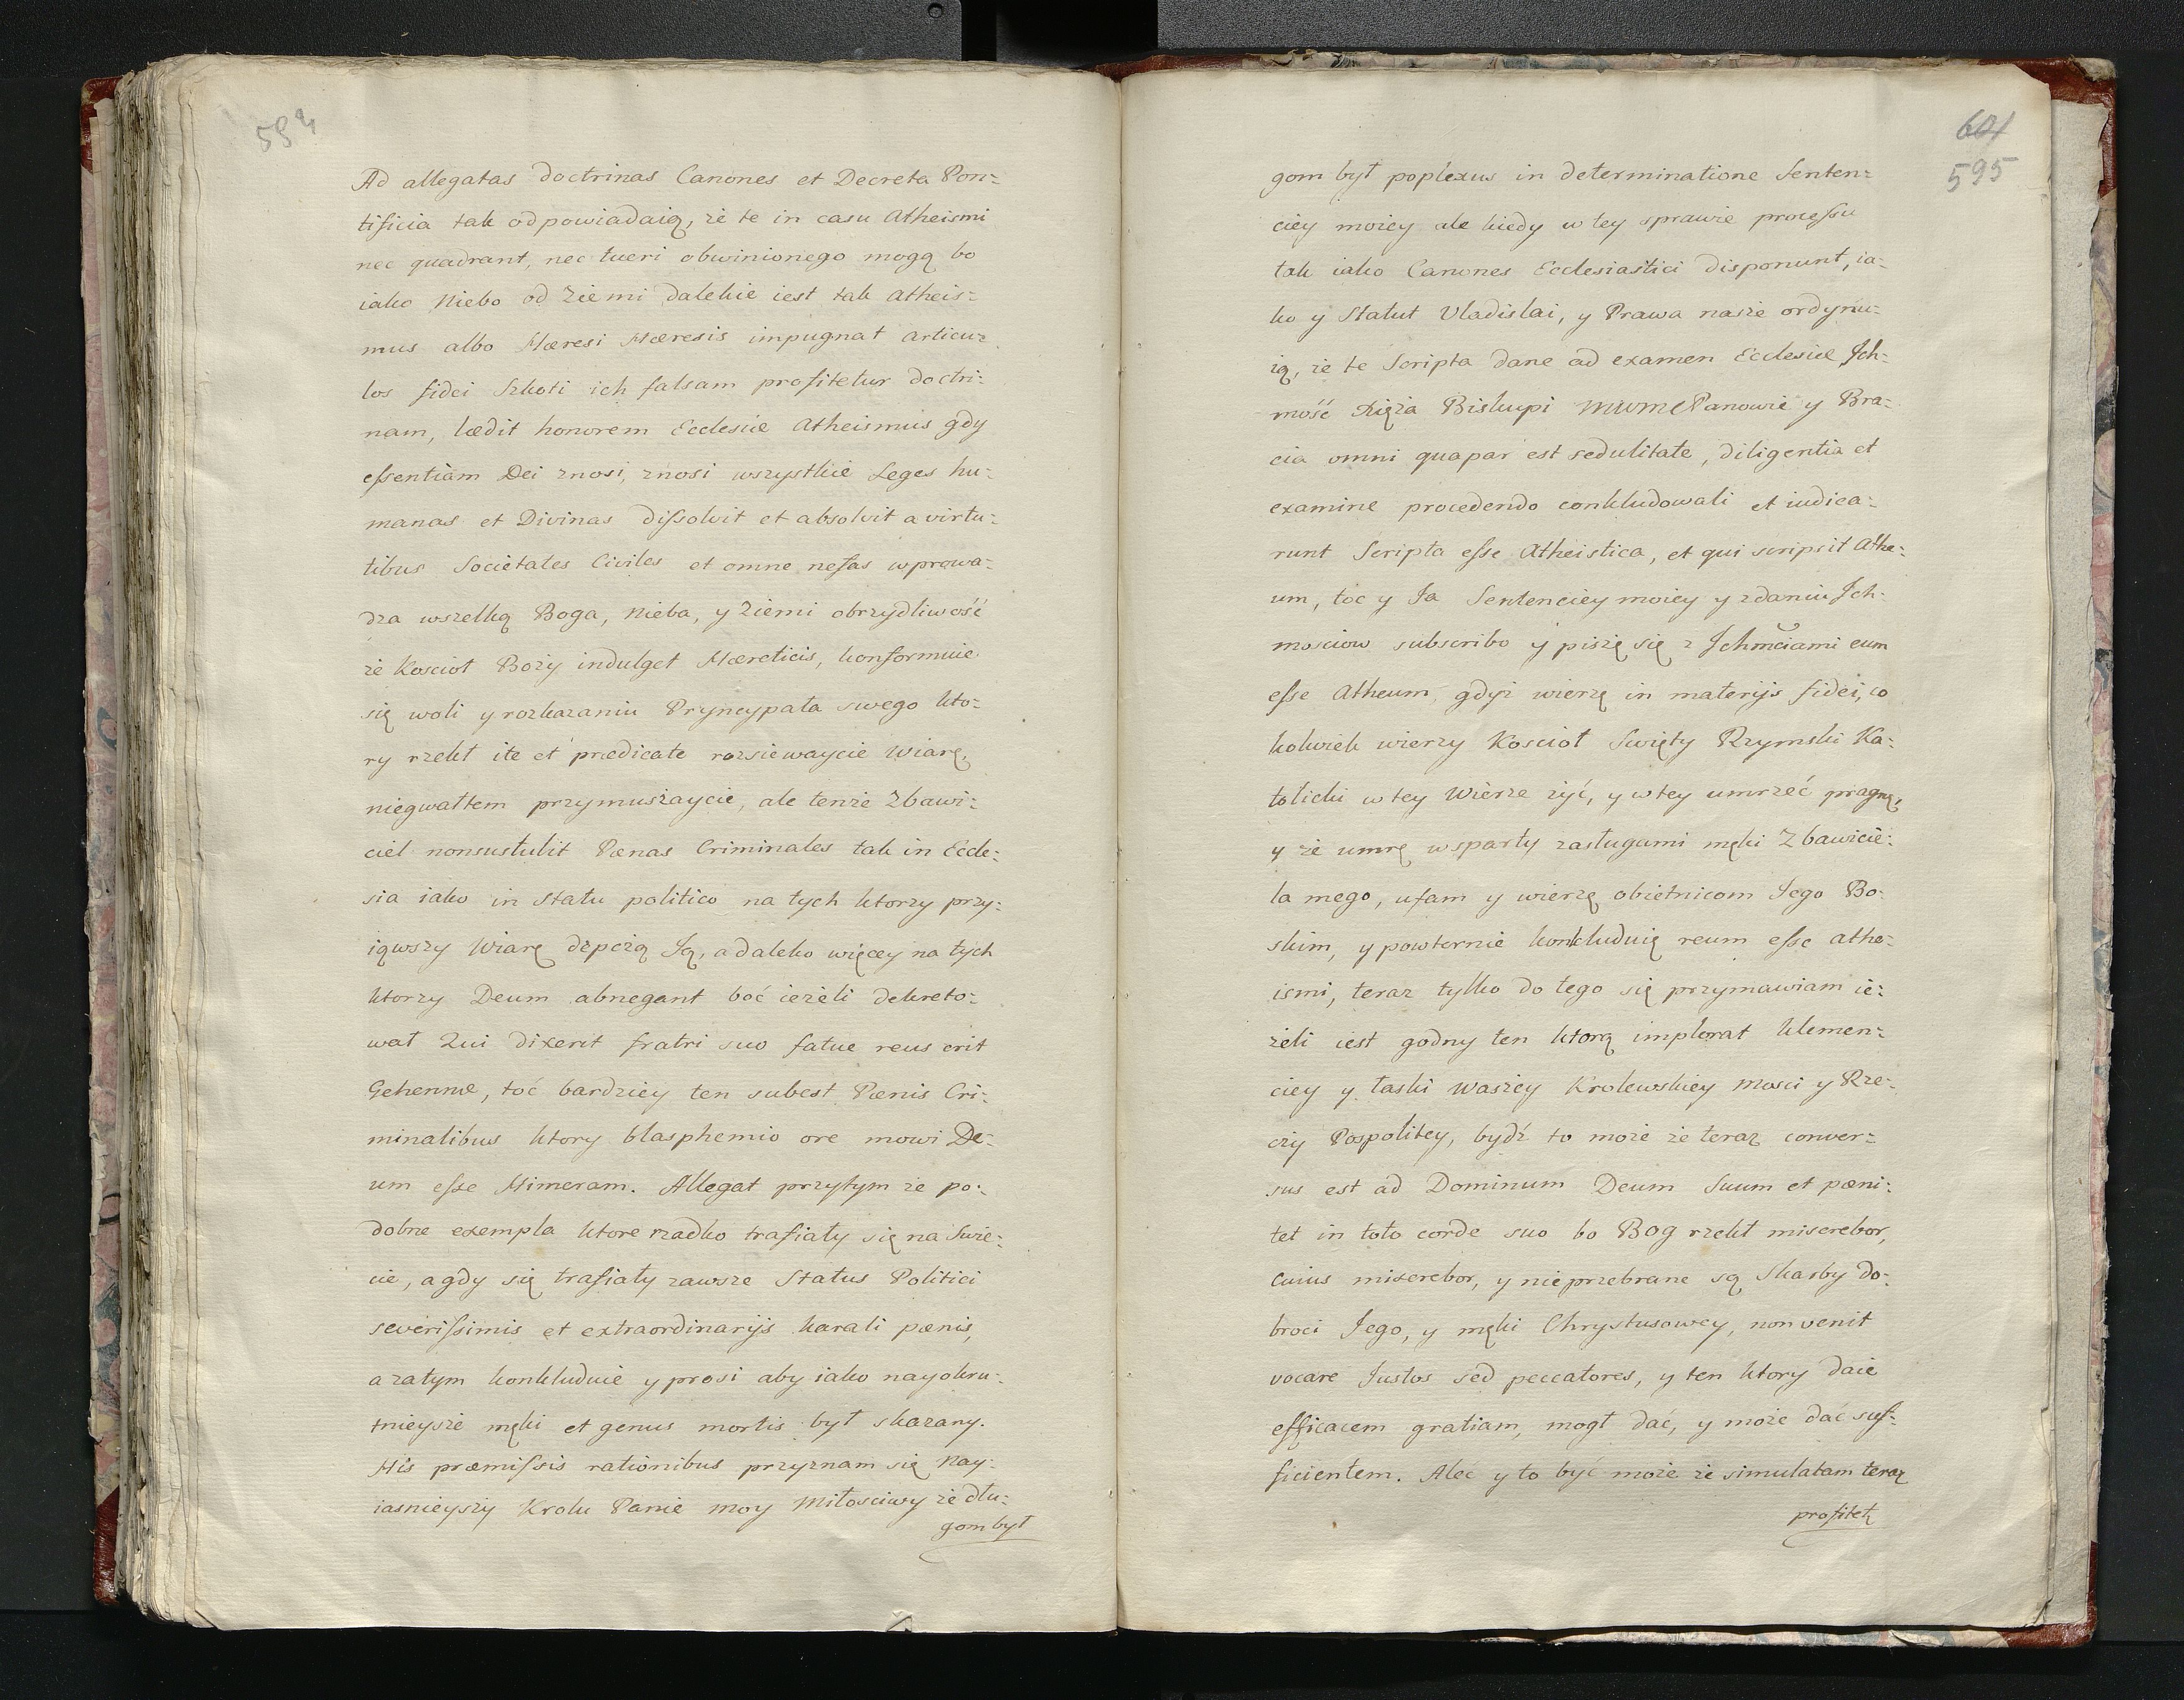 594
Ad allegatas doctrinas Canones et Decreta Pon=
tificia tak odpowiadaią, że te in casu Atheismi
nec quadrant, nec tueri obwinionego mogą bo
iako Niebo od Ziemi dalekie iest tak Atheis=
mus albo Hæresi Hæresis impugnat Articu=
los fidei Szkoti ich falsam profitetur doctri=
nam, lædit honorem Ecclesiæ Atheismus gdy
essentiam Dei znosi, znosi wszystkie Leges hu=
manas et Divinas dissolvit et absolvit a virtu=
tibus Societates Civiles et omne nefas wprowa=
dza wszelką Boga, Nieba, y Ziemi obrzydliwość
że Kościoł Boży indulget Hæreticis, konformuie
się woli y rozkazaniu Pryncypała swego kto=
ry rzekł ite et prædicate rozsiewaycie Wiarę,
niegwałtem przymuszaycie, ale tenże Zbawi=
ciel nonsustulit Pænas Criminales tak in Eccle=
sia iako in Statu politico na tych ktorzy przy=
iąwszy Wiarę depczą Ją, a daleko więcey na tych
ktorzy Deum abnegant boć ieżeli dekreto=
wał Qui dixerit fratri suo fatue reus erit
Gehennæ, toć bardziey ten subest Pænis Cri=
minalibus ktory blasphemio ore mowi De=
um esse Himeram. Allegat przytym że po=
dobne exempla ktore rzadko trafiały się na Swie=
cie, a gdy się trafiały zawsze Status Politici
severissimis et extraordinarijs karali pænis,
a zatym konkluduie y prosi aby iako nayokru=
tnieysze męki et genus mortis był skazany.
His præmissis rationibus przyznam się Nay=
iasnieyszy Krolu Panie moy Miłosciwy że dłu=
gom był
601
595
gom był poplexus in determinatione Senten=
ciey moiey ale kiedy w tey sprawie processu
tak iako Canones Ecclesiastici disponunt, ia=
ko y Statut Vladislai, y Prawa nasze ordynu=
ią, że te Scripta dane ad examen Ecclesiæ Ich=
mość Xięża Biskupi MWM Panowie y Bra=
cia omni quapar est sedulitate, diligentia et
examine procedendo conkludowali et iudica=
runt Scripta esse Atheistica, et qui scripsit Athe=
um, toc y Ja Sentenciey moiey y zdaniu Ich=
mosciow subscribo y piszę się z Ichmciami eum
esse Atheum, gdyż wierzę in materijs fidei, co
kolwiek wierzy Kościoł Swięty Rzymski Ka=
tolicki w tey Wierze żyć, y w tey umrzeć pragnę,
y że umrę wsparty zasługami męki Zbawicie=
la mego, ufam y wierzę obietnicom Jego Bo=
skim, y powtornie konkluduię reum esse athe=
ismi, teraz tylko do tego się przymawiam ie=
żeli iest godny ten ktorą implorat klemen=
ciey y łaski Waszey Krolewskiey Mosci y Rze=
czy Pospolitey, bydź to może że teraz conver=
sus est ad Dominum Deum Suum et pæni=
tet in toto corde suo bo Bog rzekł miserebor,
cuius miserebor, y nieprzebrane są Skarby do=
broci Jego, y męki Chrystusowey, non venit
vocare Justos sed peccatores, y ten ktory daie
efficacem gratiam, mogł dać, y może dać suf=
ficientem. Aleć y to być może że simulatam teraz
profitet